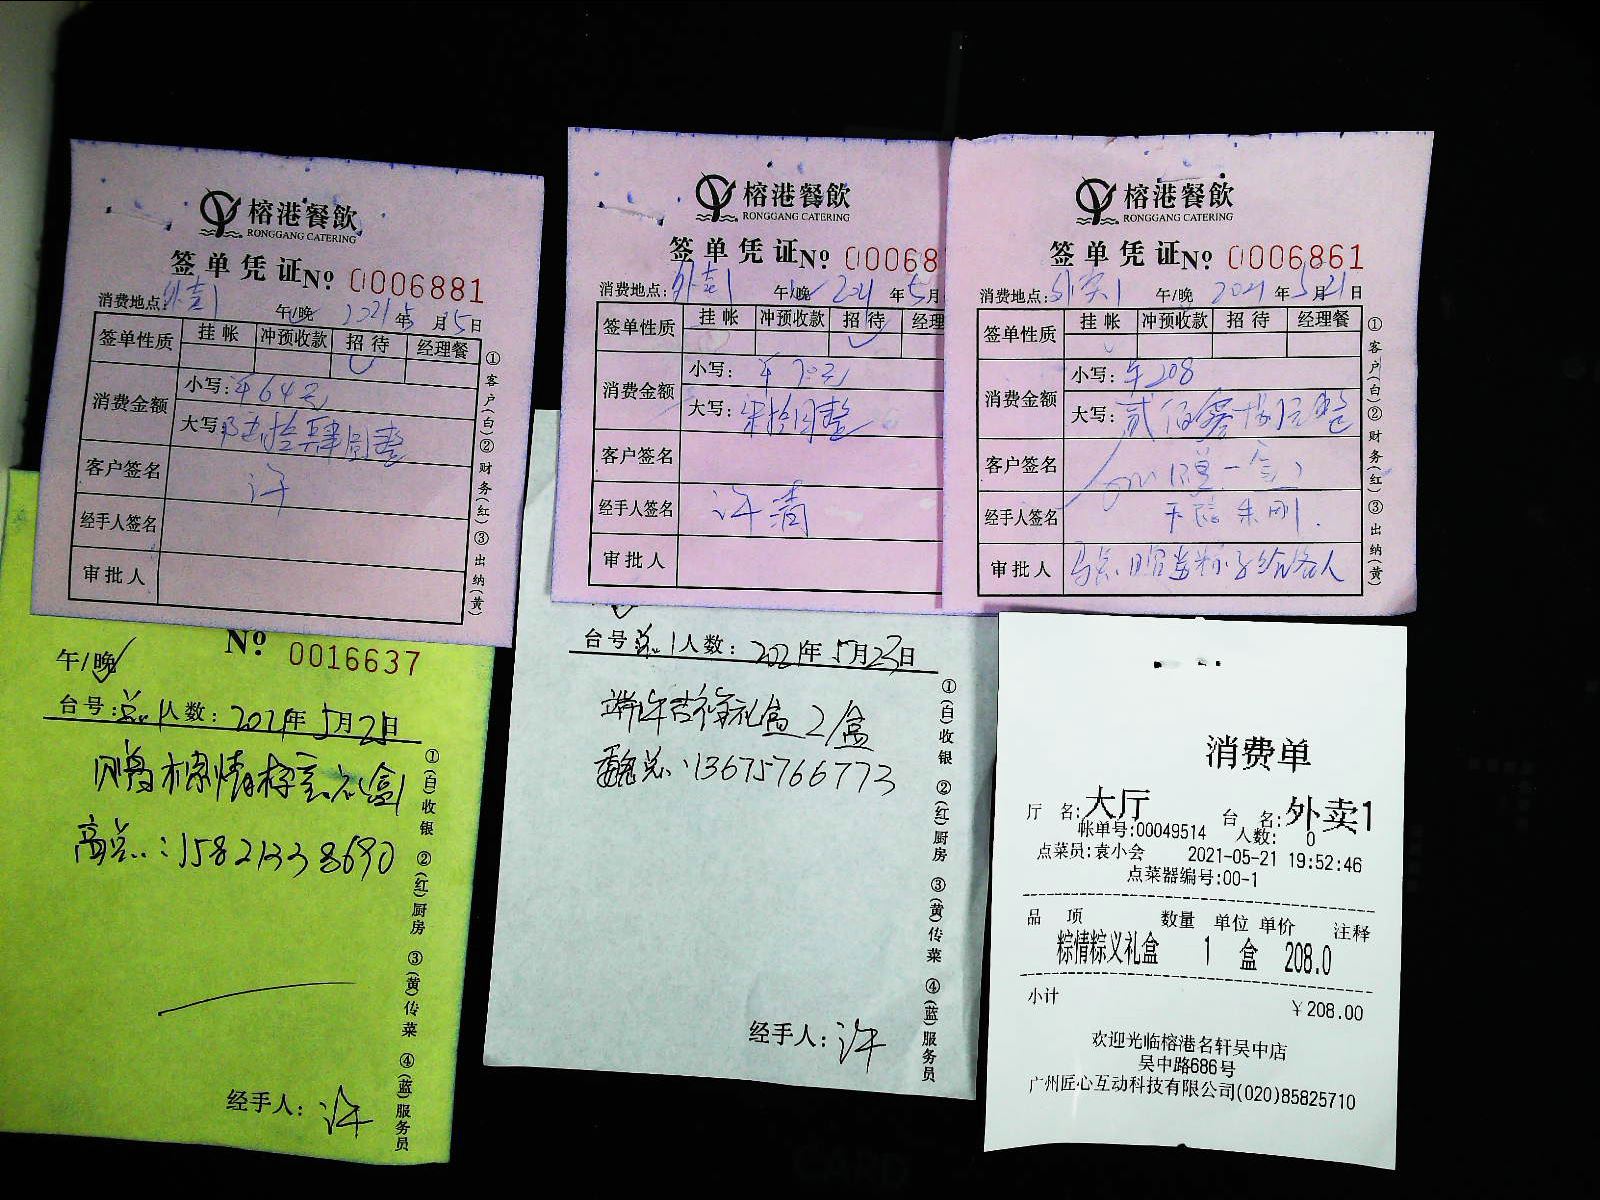 榕港餐飲
RONGGANG CATERING
签单凭证№ 0006881
消费地点:外卖1 午/晚 2021年5月5日
签单性质 挂帐 冲预收款 招待 经理餐
消费金额 小写:¥64元
大写:陆拾肆圆整
客户签名 许
经手人签名
审批人
①客户(白)②财务(红)③出纳(黄)
榕港餐飲
RONGGANG CATERING
签单凭证№ 00068
消费地点:外卖1 午/晚 2021年5月
签单性质 挂帐 冲预收款 招待 经理
消费金额 小写:¥70元
大写:柒拾圆整
客户签名
经手人签名 许清
审批人
榕港餐飲
RONGGANG CATERING
签单凭证№ 0006861
消费地点:外卖1 午/晚 2021年5月21日
签单性质 挂帐 冲预收款 招待 经理餐
消费金额 小写:¥208
大写:贰佰零捌元整
客户签名
经手人签名 朱刚.
审批人 给客人
①客户(白)②财务(红)③出纳(黄)
№ 0016637
午/晚
台号:总1人数:2021年5月21日
粽情粽义礼盒1
高总:15821338690
经手人:许
①(白)收银 ②(红)厨房 ③(黄)传菜 ④(蓝)服务员
台号总1人数:2021年5月23日
端午吉祥礼盒2盒
魏总:13675766773
经手人:许
①(白)收银 ②(红)厨房 ③(黄)传菜 ④(蓝)服务员
消费单
厅 名:大厅 台 名:外卖1
帐单号:00049514 人数: 0
点菜员:袁小会 2021-05-21 19:52:46
点菜器编号:00-1
品 项 数量 单位 单价 注释
粽情粽义礼盒 1 盒 208.0
小计 ￥208.00
欢迎光临榕港名轩吴中店
吴中路686号
广州匠心互动科技有限公司(020)85825710